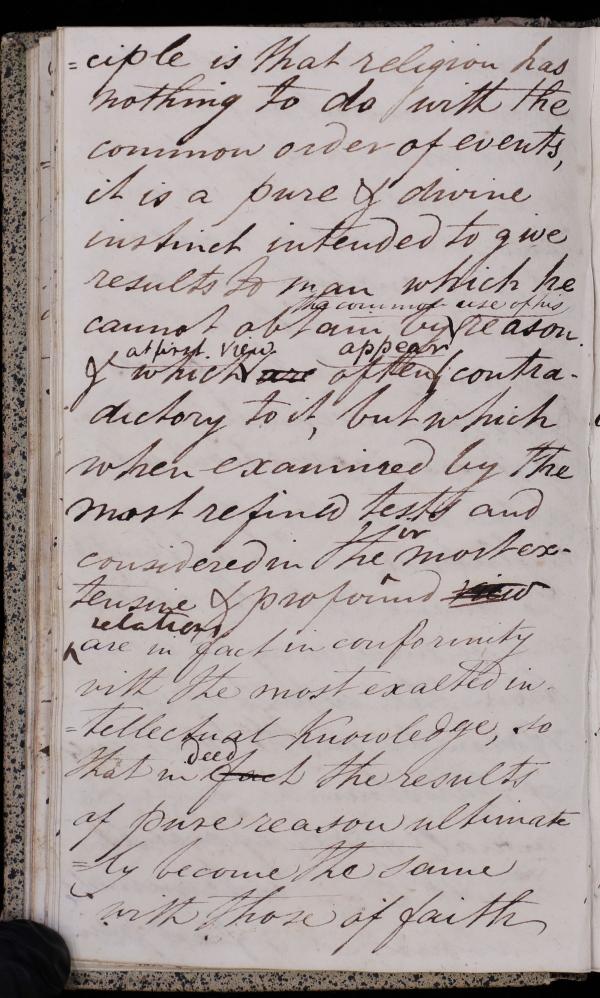 =ciple is that religion has
nothing to do with the
common order of events,
it is a pure & divine
instinct intended to give
results to man which he
the common use of his
cannot obtain by reason.
at first view appear
& which are often contra-
dictory to it, but which
when examined by the
most refined tests and
ir
considered in the most ex-
tensive & profound view
relations
are in fact in conformity
with the most exalted in-
=tellectual knowledge, so
deed
that in fact the results
of pure reason ultimate
=ly become the same
with those of faith